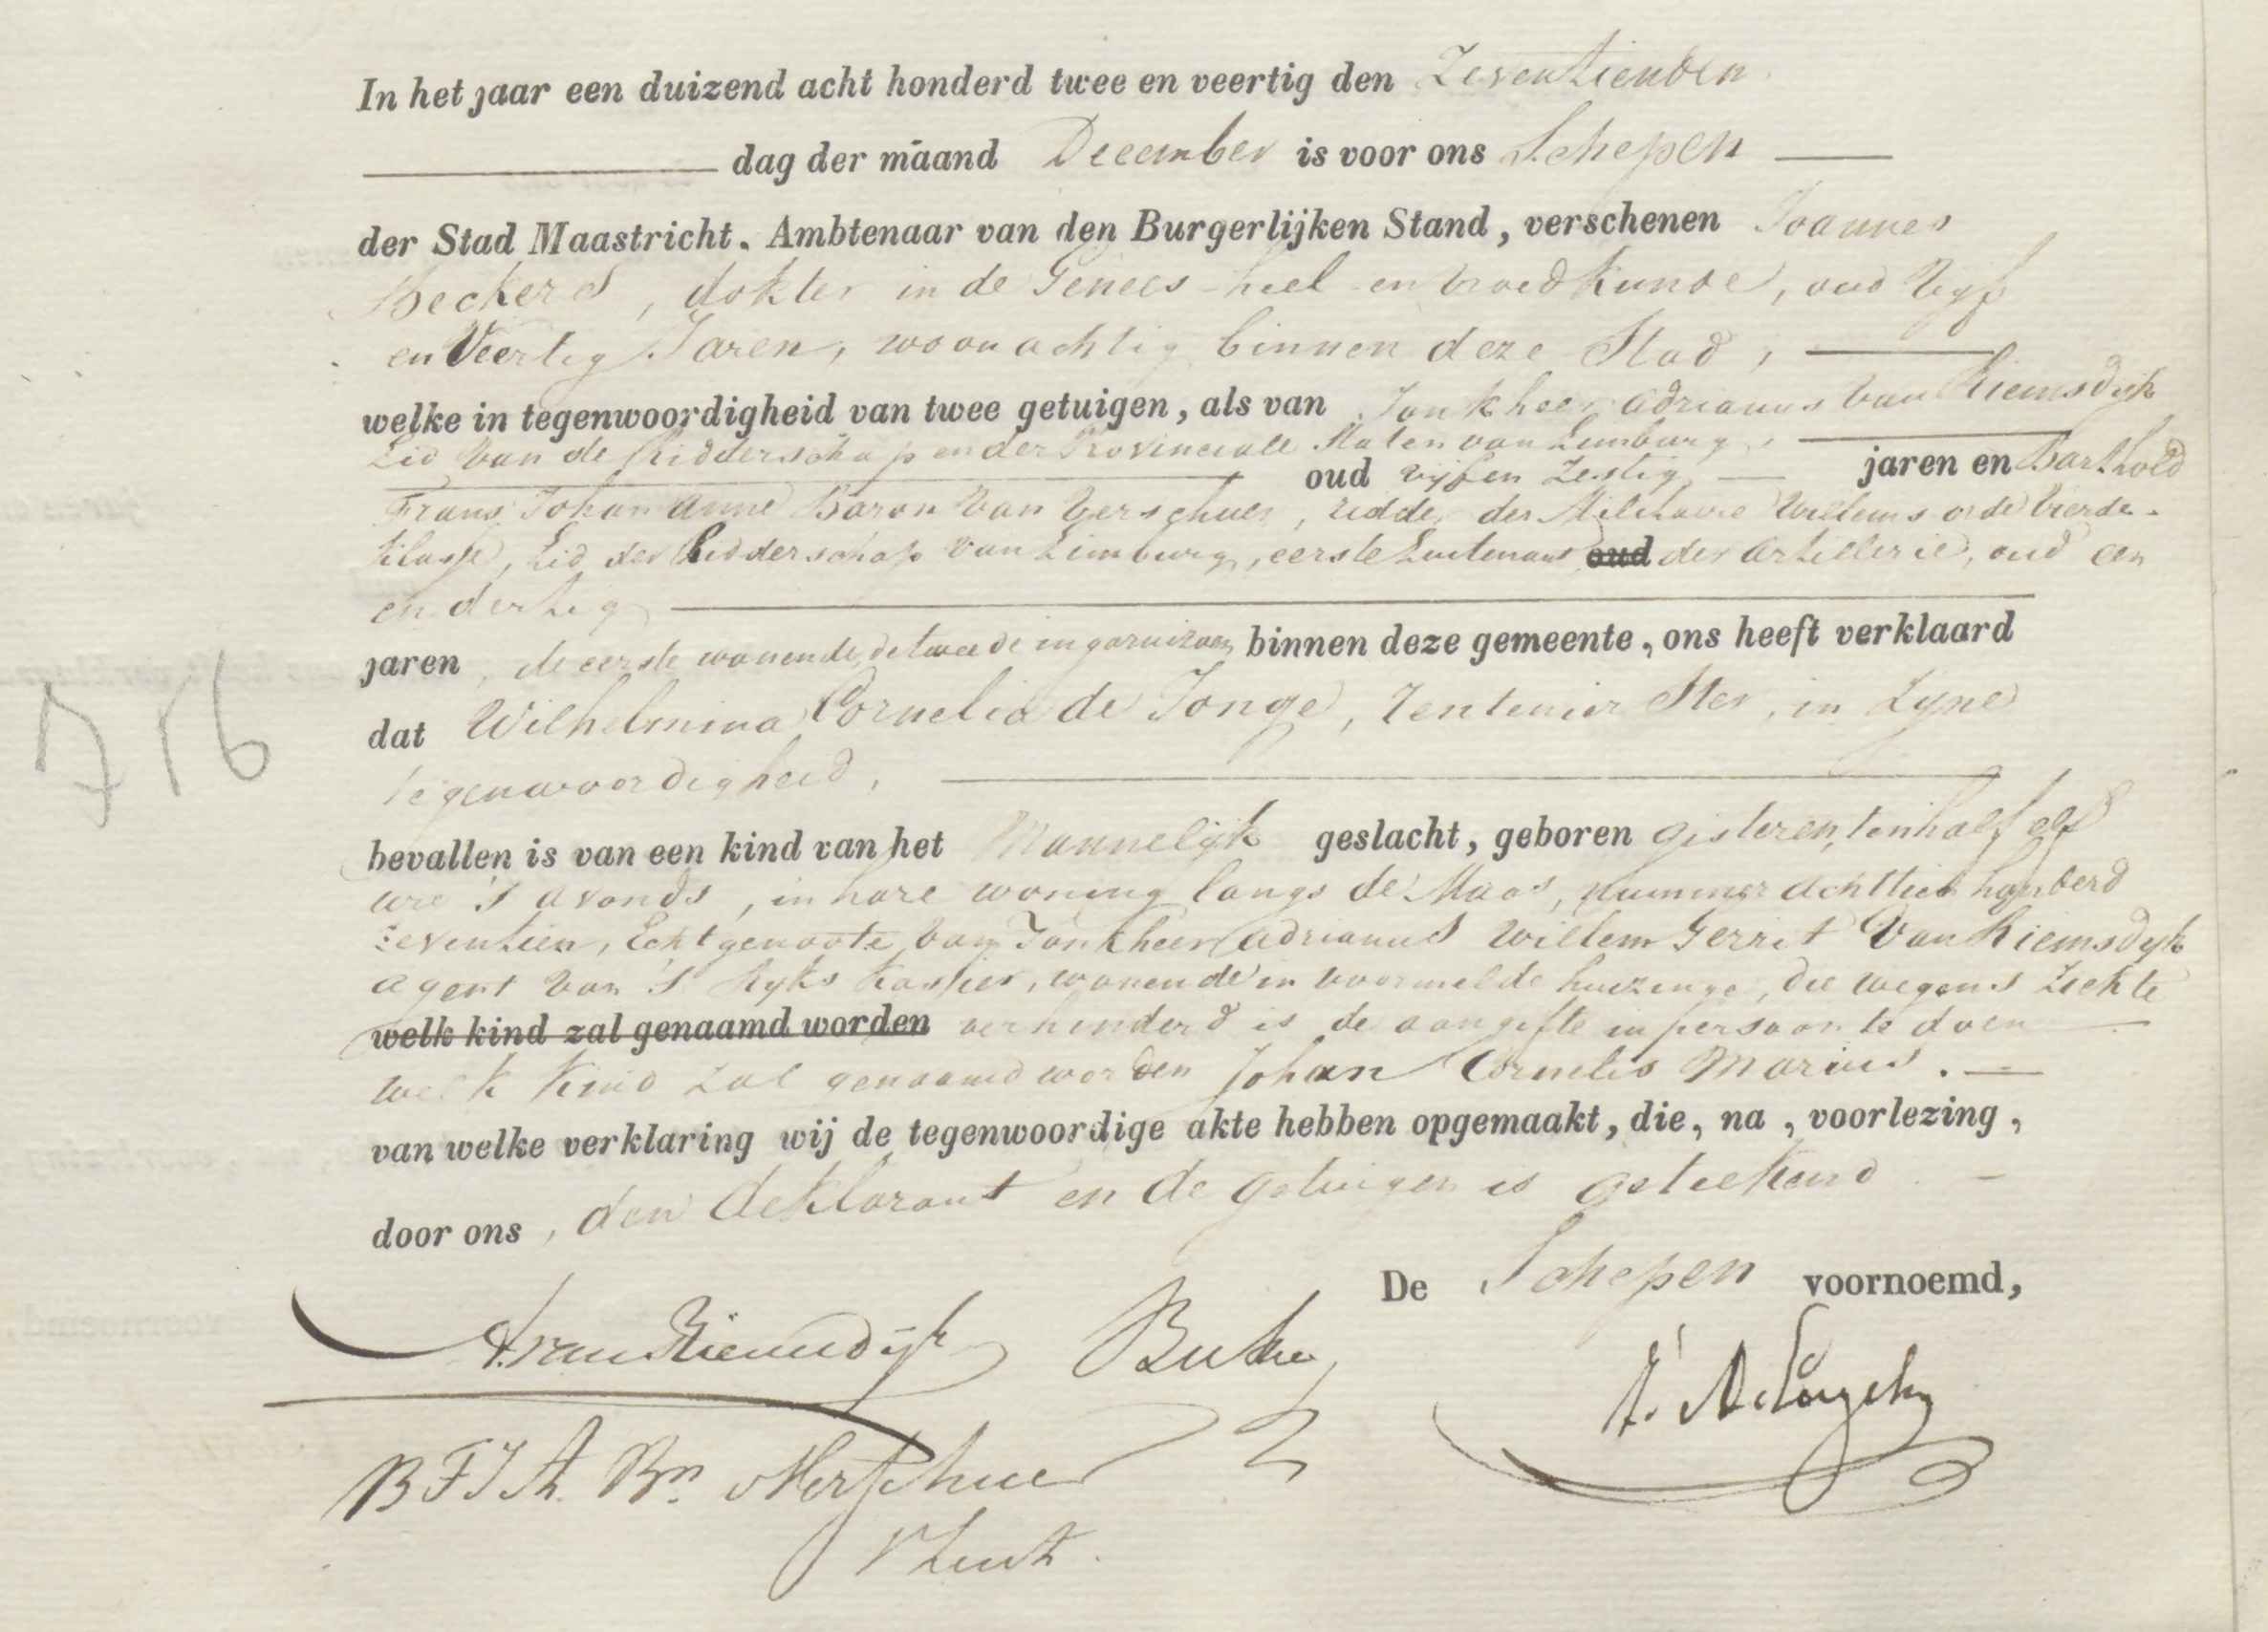 In het jaar een duizend acht honderd twee en veertig den Zeventienden
dag der maand December is voor ons Schepen
der Stad Maastricht, Ambtenaar van den Burgerlijken Stand, verschenen Joannes
Beckers, dokter in de Genees-heel-en vroedkunde, oud Vyf
en Veertig Jaren, woonachtig binnen deze Stad,
welke in tegenwoordigheid van twee getuigen, als van Jonkheer Adrianus van Riemsdyk
Lid van de Ridderschap en der Provinciale Staten van Limburg,
oud vijf en Zestig jaren en Barthold
Frans Johan Anne Baron van Verschuer, ridder der Militaire Willems orde vierde
klasse, Lid der Ridderschap van Limburg, eerste Luitenant oud der Artillerie, oud een
en dertig
jaren, de eerste wonende, de tweede in garnizoen binnen deze gemeente, ons heeft verklaard
dat Wilhelmina Cornelia de Jonge, Rentenier Ster, in Zyne
tegenwoordigheid,
bevallen is van een kind van het Mannelijk geslacht, geboren gisteren, ten half elf
ure 's avonds, in hare woning langs de Maas, nummer achttien honderd
zeventien, Echtgenoote van Jonkheer Adrianus Willem Gerrit Van Riemsdyk
agent van 's Ryks kassier, wonende in voormelde huizinge, die wegens ziekte
welk kind zal genaamd worden verhinderd is de aangifte in persoon te doen
welk kind zal genaamd worden Johan Cornelis Marius.
van welke verklaring wij de tegenwoordige akte hebben opgemaakt, die, na, voorlezing,
door ons, den deklarant en de getuigen is geteekend
De Schepen voornoemd,
A. van Riemsdijk
B F J A Bn. v Verschuer
1 Luit.
716